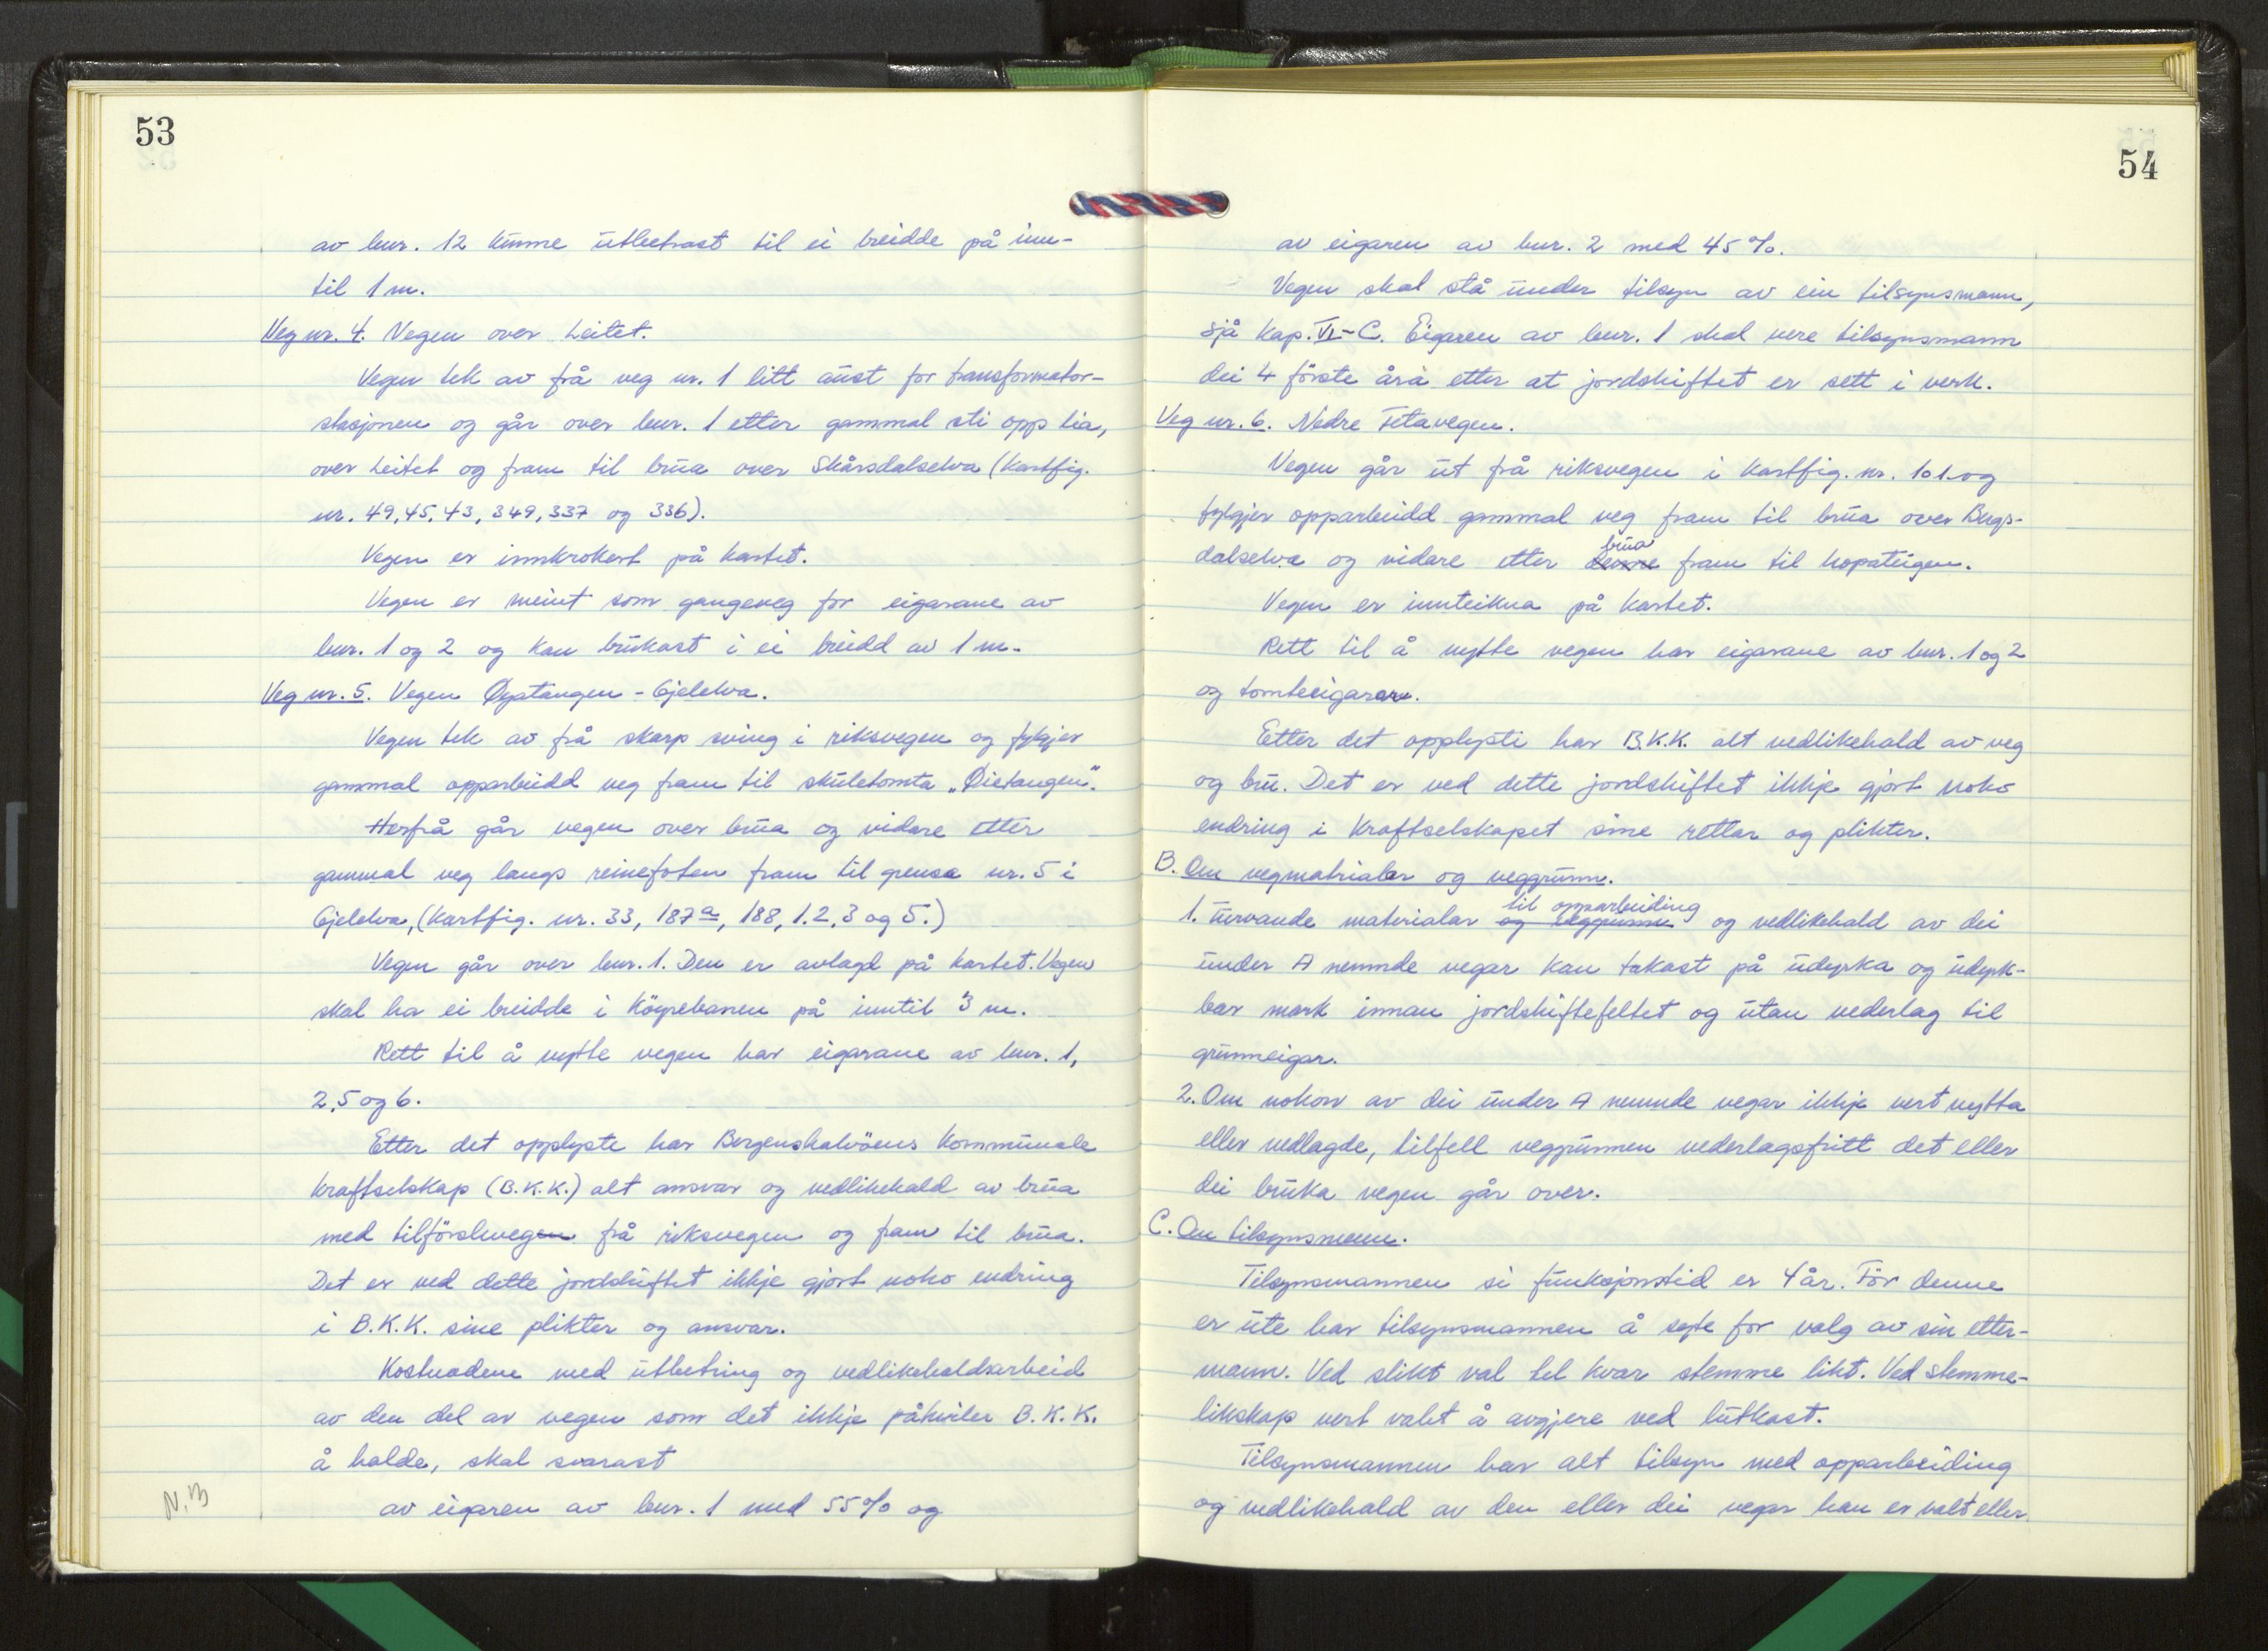 53
av bnr. 12 kunne utbetrast til ei breidde på inn-
til 1 m.
Veg nr. 4. Vegen over Leitet.
Vegen tek av frå veg nr. 1 litt aust for transformator-
stasjonen og går over bnr. 1 etter gammal sti opp lia,
over Leitet og fram til brua over Skårsdalselva (Kartfig.
nr. 49, 45, 43, 349, 337 og 336).
Vegen er innkrokert på kartet.
Vegen er meint som gangveg for eigarane av
bnr. 1 og 2 og kan brukast i ei breidd av 1 m.
Veg nr. 5. Vegen Øyatangen - Gjelelva.
Vegen tek av frå skarp sving i riksvegen og fylgjer
gammal opparbeidd veg fram til skuletomta „Øietangen".
Herfrå går vegen over brua og vidare etter
gammal veg langs reinefoten fram til grensa nr. 5 i
Gjelelva, (Kartfig. nr. 33, 187a, 188, 1. 2, 3 og 5.)
Vegen går over bnr. 1. Den er avlagd på kartet. Vegen
skal ha ei breidde i köyrebanen på inntil 3 m.
Rett til å nytte vegen har eigarane av bnr. 1,
2, 5 og 6.
Etter det opplyste har Bergenshalvöens Kommunale
Kraftselskap (B.K.K.) alt ansvar og vedlikehald av brua
med tilförslevegen frå riksvegen og fram til brua.
Det er ved dette jordskiftet ikkje gjort noko endring
i B.K.K. sine plikter og ansvar.
Kostnadene med utbetring og vedlikehaldsarbeid
av den del av vegen som det ikkje påkviler B.K.K.
å halde, skal svarast
av eigaren av bnr. 1 med 55% og
N.B
54
av eigaren av bnr. 2 med 45%.
Vegen skal stå under tilsyn av ein tilsynsmann,
sjå kap. VI-C. Eigaren av bnr. 1 skal vere tilsynsmann
dei 4 förste åra etter at jordskiftet er sett i verk.
Veg nr. 6. Nedre Fetavegen.
Vegen går ut frå riksvegen i Kartfig. nr. 101 og
fylgjer opparbeidd gammal veg fram til brua over Bugs-
brua
dalselva og vidare etter denne fram til hopateigen.
Vegen er innteikna på kartet.
Rett til å nytte vegen har eigarane av bnr. 1 og 2
og tomteeigaren.
Etter det opplysti har B.K.K. alt vedlikehald av veg
og bru. Det er ved dette jordskiftet ikkje gjort noko
endring i Kraftselskapet sine rettar og plikter.
B. Om vegmatrialer og veggrunn.
til opparbeiding
1. Turvande materialar og veggrunn og vedlikehald av dei
under A nemnde vegar kan takast på udyrka og udyrk-
bar mark innan jordskiftefeltet og utan vederlag til
grunneigar.
2. Om nokon av dei under A nemnde vegar ikkje vert nytta
eller nedlagde, tilfell veggrunnen vederlagsfritt det eller
dei bruka vegen går over.
C. Om tilsynsmenn.
Tilsynsmannen si funksjonstid er 4 år. För denne
er ute har tilsynsmannen å syte for valg av sin etter-
mann. Ved slikt val tel kvar stemme likt. Ved stemme-
likskap vert valet å avgjere ved lutkast.
Tilsynsmannen har alt tilsyn med opparbeiding
og vedlikehald av den eller dei vegar han er valt eller